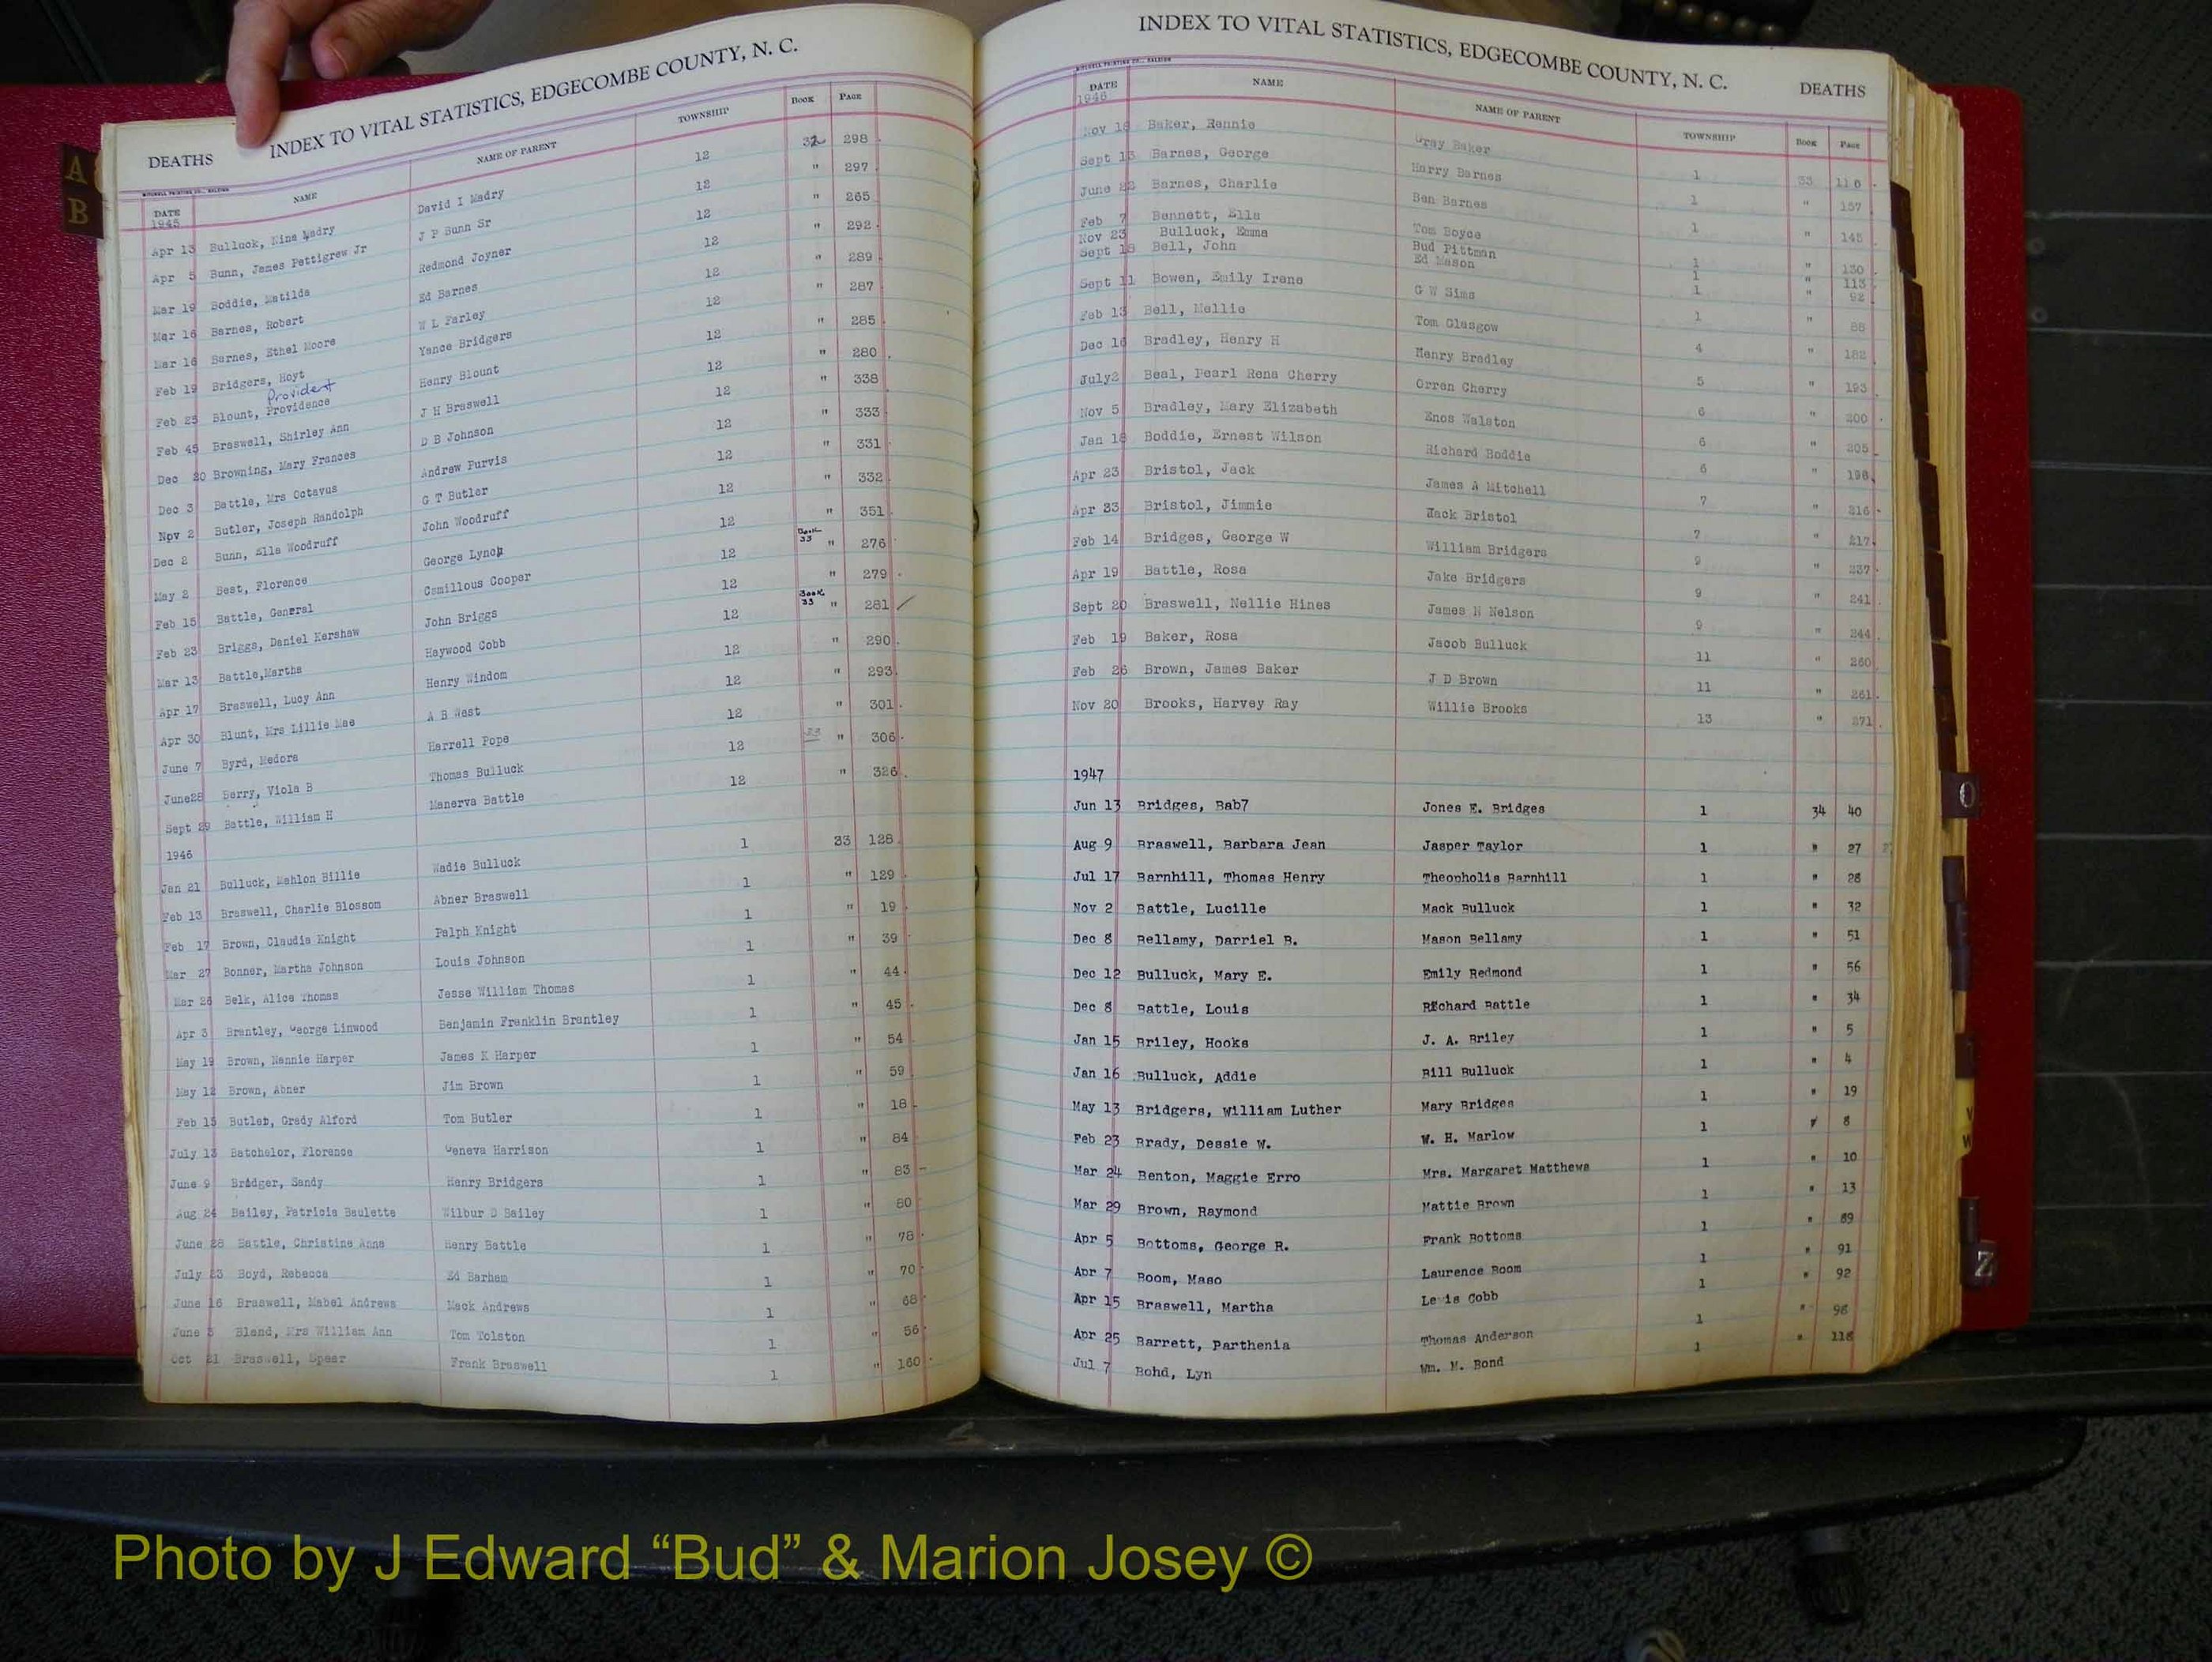 A
B
DEATHS INDEX TO VITAL STATISTICS, EDGECOMBE COUNTY, N. C.
MITCHELL PRINTING CO., RALEIGH
DATE NAME NAME OF PARENT TOWNSHIP BOOK PAGE
1945
Apr 13 Bulluck, Nina Madry David I Madry 12 32 298
Apr 5 Bunn, James Pettigrew Jr J P Bunn Sr 12 " 297
Mar 19 Boddie, Matilda Redmond Joyner 12 " 265
Mar 16 Barnes, Robert Ed Barnes 12 " 292
Mar 16 Barnes, Ethel Moore W L Farley 12 " 289
Feb 19 Bridgers, Hoyt Yance Bridgers 12 " 287
Provident
Feb 23 Blount, Providence Henry Blount 12 " 285
Feb 45 Braswell, Shirley Ann J H Braswell 12 " 280
Dec 20 Browning, Mary Frances D B Johnson 12 " 338
Dec 3 Battle, Mrs Octavus Andrew Purvis 12 " 333
Nov 2 Butler, Joseph Randolph G T Butler 12 " 331
Dec 2 Bunn, Ella Woodruff John Woodruff 12 " 332
May 2 Best, Florence George Lynch 12 " 351
Feb 15 Battle, General Camillous Cooper 12 Book 33 " 276
Feb 23 Briggs, Daniel Kershaw John Briggs 12 " 279
Mar 13 Battle,Martha Haywood Cobb 12 Book 33 " 281
Apr 17 Braswell, Lucy Ann Henry Windom 12 " 290
Apr 30 Blunt, Mrs Lillie Mae A B West 12 " 293
June 7 Byrd, Medora Harrell Pope 12 " 301
June28 Berry, Viola B Thomas Bulluck 12 33 " 306
Sept 29 Battle, William H Manerva Battle 12 " 326
1946
Jan 21 Bulluck, Mahlon Billie Wadie Bulluck 1 33 128
Feb 13 Braswell, Charlie Blossom Abner Braswell 1 " 129
Feb 17 Brown, Claudia Knight Palph Knight 1 " 19
Mar 27 Bonner, Martha Johnson Louis Johnson 1 " 39
Mar 28 Belk, Alice Thomas Jesse William Thomas 1 " 44
Apr 3 Brantley, George Linwood Benjamin Franklin Brantley 1 " 45
May 19 Brown, Nannie Harper James K Harper 1 " 54
May 12 Brown, Abner Jim Brown 1 " 59
Feb 15 Butler, Grady Alford Tom Butler 1 " 18
July 13 Batchelor, Florence Geneva Harrison 1 " 84
June 9 Bridger, Sandy Henry Bridgers 1 " 83
Aug 24 Bailey, Patricia Paulette Wilbur D Bailey 1 " 80
June 28 Battle, Christine Anna Henry Battle 1 " 78
July 23 Boyd, Rebecca Ed Barham 1 " 70
June 16 Braswell, Mabel Andrews Mack Andrews 1 " 68
June 5 Bland, Mrs William Ann Tom Tolston 1 " 56
Oct 21 Braswell, Spear Frank Braswell 1 " 160
INDEX TO VITAL STATISTICS, EDGECOMBE COUNTY, N. C. DEATHS
MITCHELL PRINTING CO., RALEIGH
DATE NAME NAME OF PARENT TOWNSHIP BOOK PAGE
1946
Nov 18 Baker, Rennie Gray Baker 1 33 116
Sept 15 Barnes, George Harry Barnes 1 " 157
June 22 Barnes, Charlie Ben Barnes 1 " 145
Feb 7 Bennett, Ella Tom Boyce 1 " 130
Nov 23 Bulluck, Emma Bud Pittman 1 " 113
Sept 18 Bell, John Ed Mason 1 " 92
Sept 11 Bowen, Emily Irene G W Sims 1 " 88
Feb 13 Bell, Mellie Tom Glasgow 4 " 182
Dec 16 Bradley, Henry H Henry Bradley 5 " 193
July2 Beal, Pearl Rena Cherry Orren Cherry 6 " 200
Nov 5 Bradley, Mary Elizabeth Enos Walston 6 " 205
Jan 18 Boddie, Ernest Wilson Richard Boddie 6 " 198
Apr 23 Bristol, Jack James A Mitchell 7 " 216
Apr 23 Bristol, Jimmie Jack Bristol 7 " 217
Feb 14 Bridges, George W William Bridgers 9 " 237
Apr 19 Battle, Rosa Jake Bridgers 9 " 241
Sept 20 Braswell, Nellie Hines James N Nelson 9 " 244
Feb 19 Baker, Rosa Jacob Bulluck 11 " 260
Feb 26 Brown, James Baker J D Brown 11 " 261
Nov 20 Brooks, Harvey Ray Willie Brooks 13 " 271
1947
Jun 13 Bridges, Bab7 Jones E. Bridges 1 34 40
Aug 9 Braswell, Barbara Jean Jasper Taylor 1 " 27
Jul 17 Barnhill, Thomas Henry Theopholis Barnhill 1 " 28
Nov 2 Battle, Lucille Mack Bulluck 1 " 32
Dec 8 Bellamy, Darriel B. Mason Bellamy 1 " 51
Dec 12 Bulluck, Mary E. Emily Redmond 1 " 56
Dec 8 Battle, Louis Richard Battle 1 " 34
Jan 15 Briley, Hooks J. A. Briley 1 " 5
Jan 16 Bulluck, Addie Bill Bulluck 1 " 4
May 13 Bridgers, William Luther Mary Bridges 1 " 19
Feb 23 Brady, Dessie W. W. H. Marlow 1 " 8
Mar 24 Benton, Maggie Erro Mrs. Margaret Matthews 1 " 10
Mar 29 Brown, Raymond Mattie Brown 1 " 13
Apr 5 Bottoms, George R. Frank Bottoms 1 " 89
Apr 7 Boom, Maso Laurence Boom 1 " 91
Apr 15 Braswell, Martha Lewis Cobb 1 " 92
Apr 25 Barrett, Parthenia Thomas Anderson 1 " 98
Jul 7 Bohd, Lyn Wm. M. Bond 1 " 118
O
V
W
Z
Photo by J Edward “Bud” & Marion Josey ©